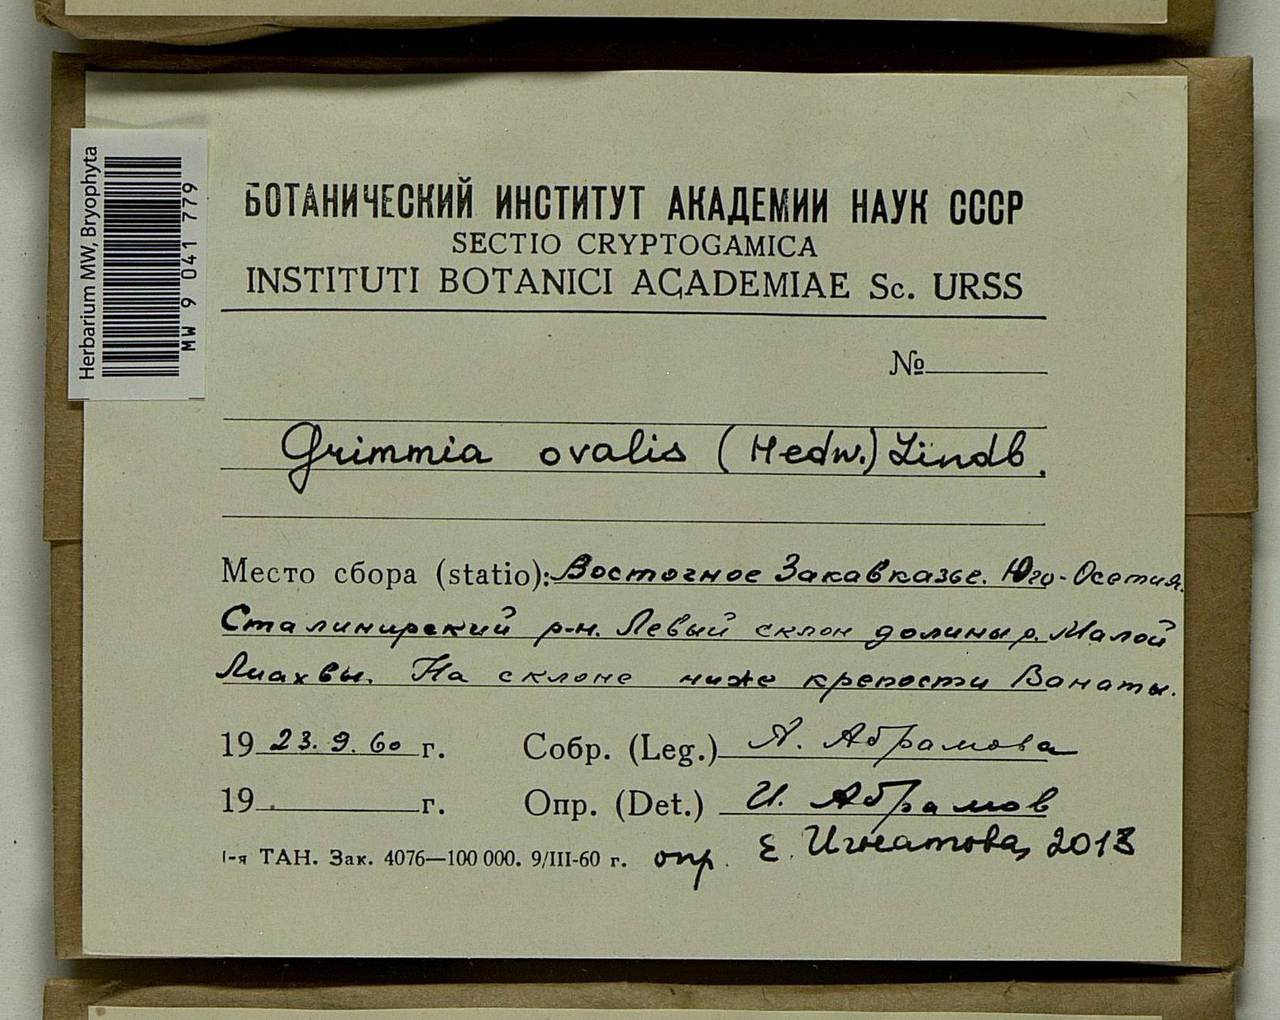 Herbarium MW, Bryophyta
MW 9 041 779
БОТАНИЧЕСКИЙ ИНСТИТУТ АКАДЕМИИ НАУК СССР
SECTIO CRYPTOGAMICA
INSTITUTI BOTANICI ACADEMIAE Sc. URSS
№
Grimmia ovalis (Hedw.) Lindb.
Место сбора (statio): Восточное Закавказье. Юго-Осетия.
Сталинирский р-н. Левый склон долины р. Малой
Лиахвы. На склоне ниже крепости Ванаты.
19 23.9.60 г. Собр. (Leg.) А. Абрамова
19 г. Опр. (Det.) И. Абрамов
1-я ТАН. Зак. 4076—100 000. 9/III-60 г. опр. Е. Игнатова, 2013